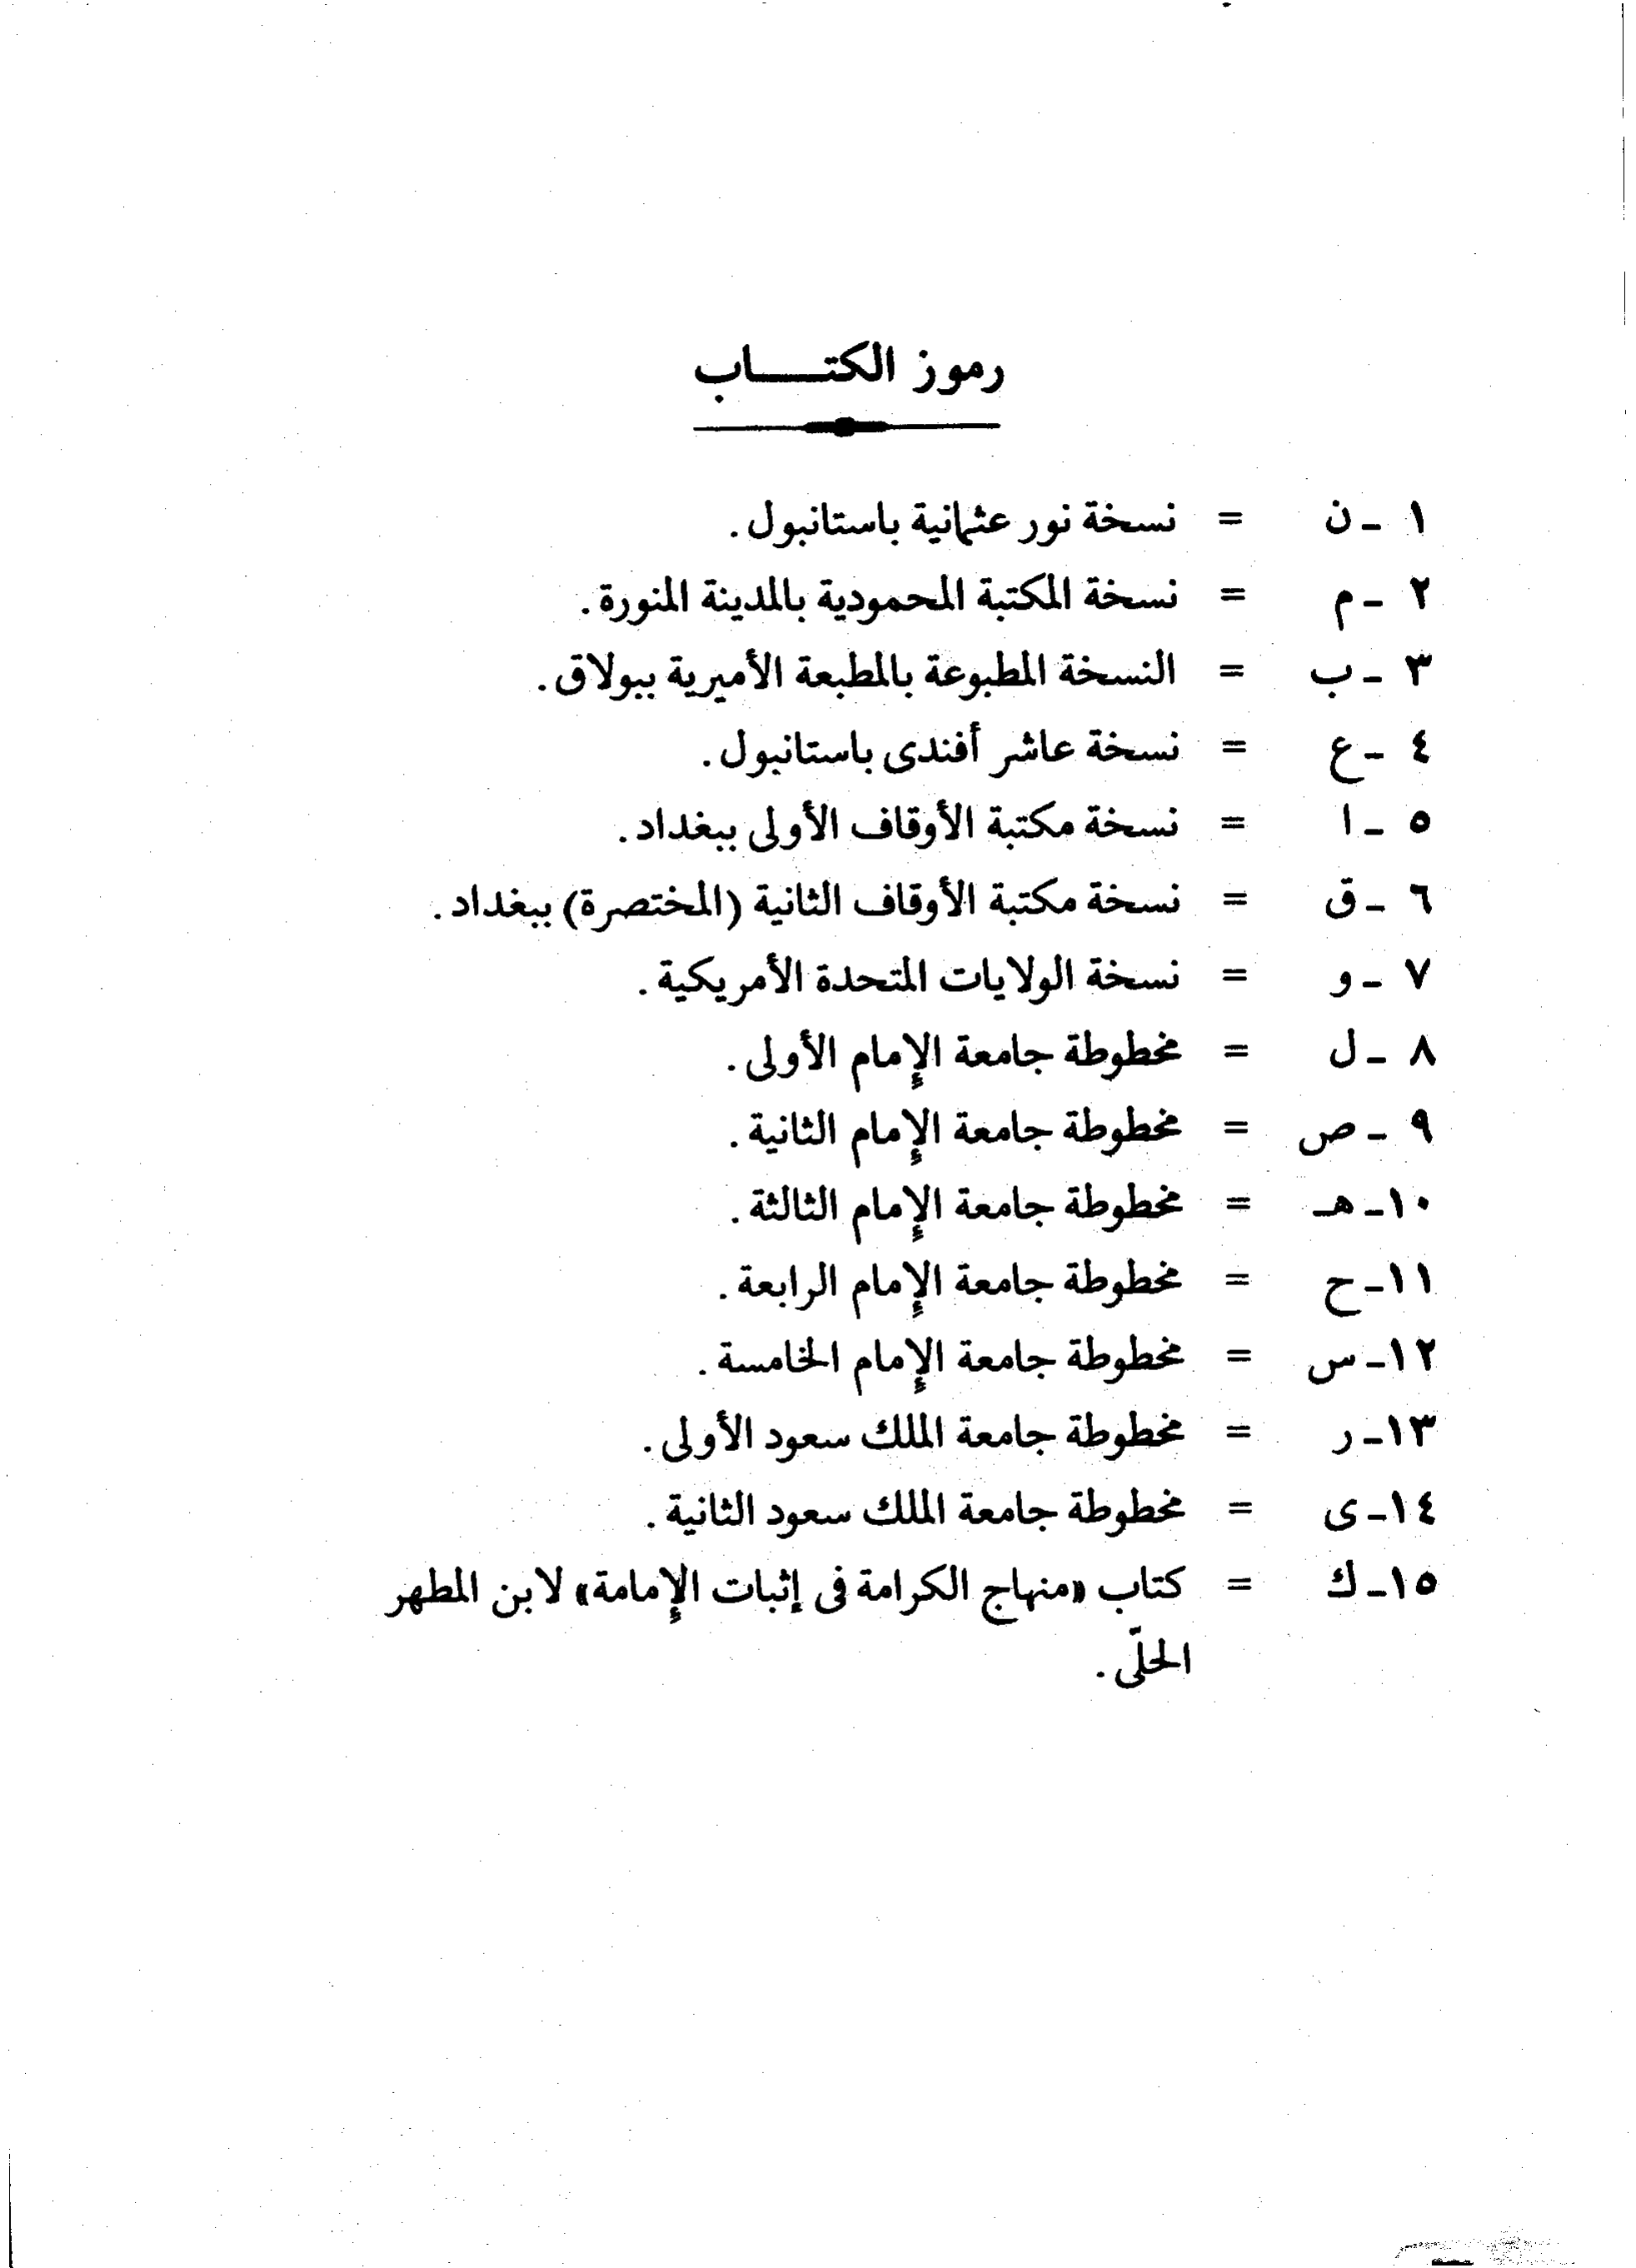 رموز الكتـــاب
١ - ن = نسخة نور عثمانية باستانبول.
٢ - م = نسخة المكتبة المحمودية بالمدينة المنورة.
٣ - ب = النسخة المطبوعة بالمطبعة الأميرية ببولاق.
٤ - ع = نسخة عاشر أفندى باستانبول.
٥ - ا = نسخة مكتبة الأوقاف الأولى ببغداد.
٦ - ق = نسخة مكتبة الأوقاف الثانية (المختصرة) ببغداد.
٧ - و = نسخة الولايات المتحدة الأمريكية.
٨ - ل = مخطوطة جامعة الإمام الأولى.
٩ - ص = مخطوطة جامعة الإمام الثانية.
١٠- هـ = مخطوطة جامعة الإمام الثالثة.
١١- ح = مخطوطة جامعة الإمام الرابعة.
١٢- س = مخطوطة جامعة الإمام الخامسة.
١٣- ر = مخطوطة جامعة الملك سعود الأولى.
١٤- ى = مخطوطة جامعة الملك سعود الثانية.
١٥- ك = كتاب «منهاج الكرامة فى إثبات الإمامة» لابن المطهر
الحلّى.